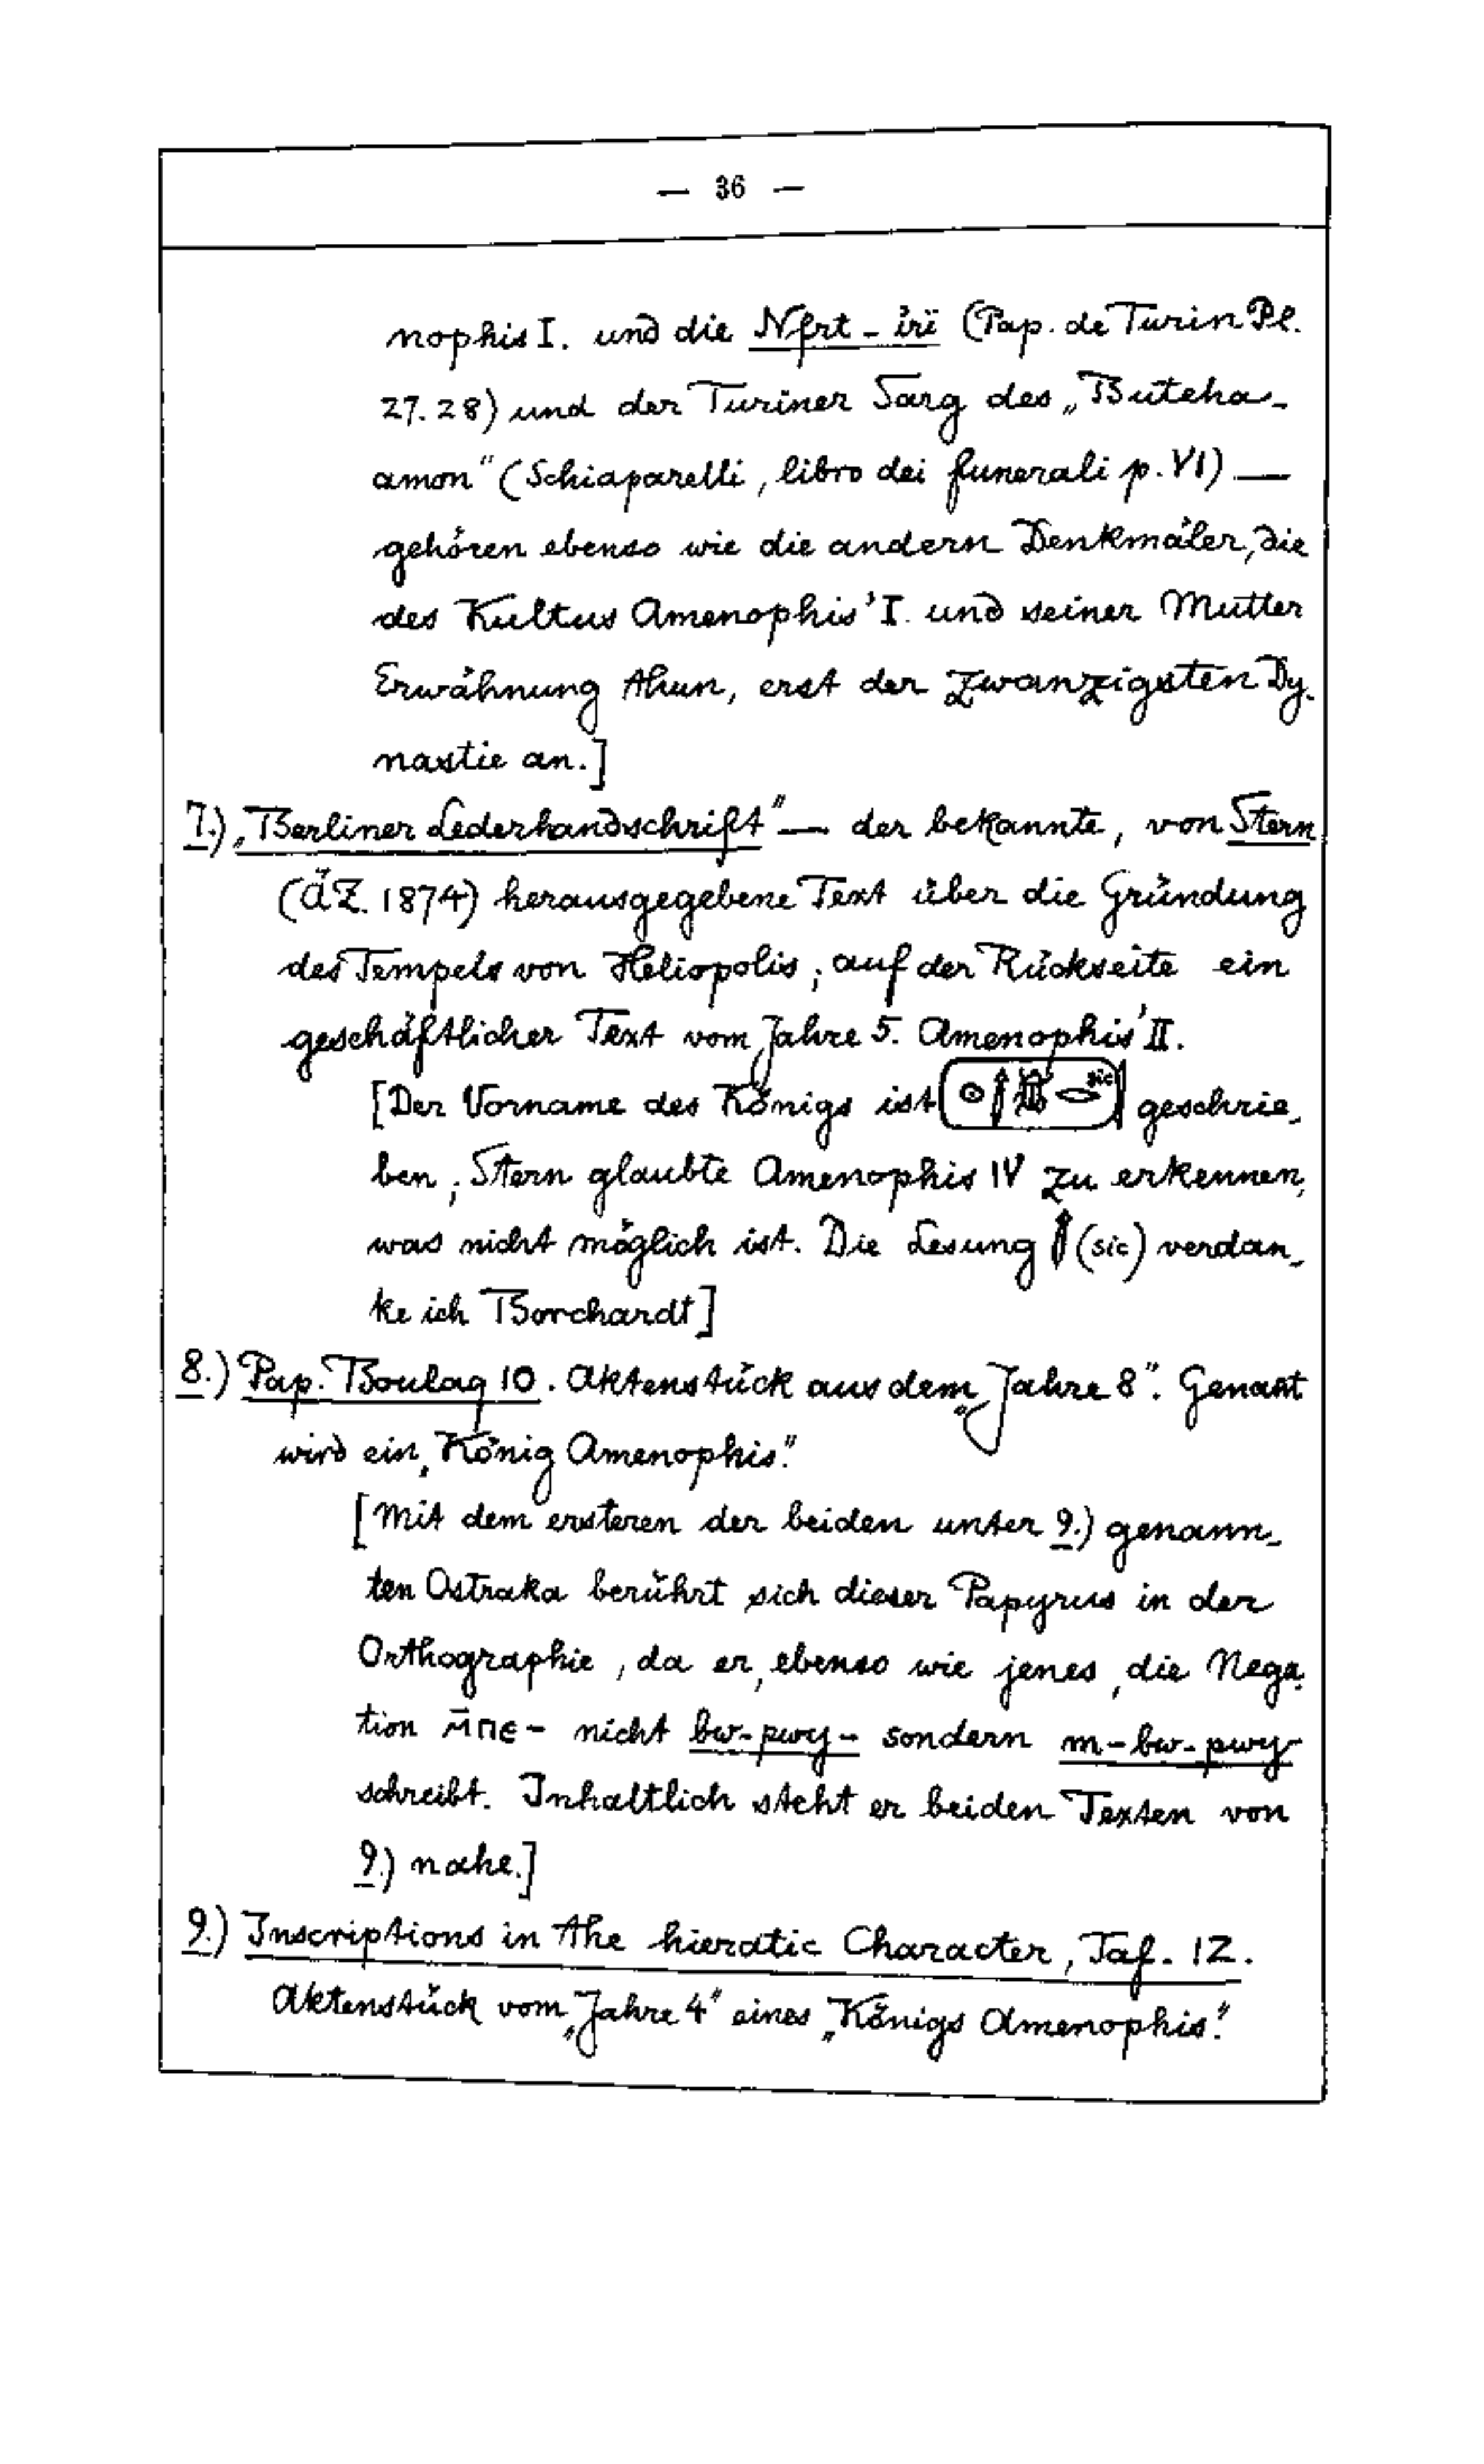 — 36 —
nophis I. und die Nfrt-irï (Pap. de Turin Pl.
27.28) und der Turiner Sarg des „Buteha-
amon“ (Schiaparelli, libro dei funerali p. VI) —
gehören ebenso wie die andern Denkmäler, die
des Kultus Amenophis' I. und seiner Mutter
Erwähnung thun, erst der zwanzigsten Dy-
nastie an.]
7.) „Berliner Lederhandschrift“ — der bekannte, von Stern
(ÄZ. 1874) herausgegebene Text über die Gründung
des Tempels von Heliopolis; auf der Rückseite ein
geschäftlicher Text vom Jahre 5. Amenophis' II.
[Der Vorname des Königs ist sic geschrie-
ben; Stern glaubte Amenophis IV zu erkennen,
was nicht möglich ist. Die Lesung (sic) verdan-
ke ich Borchardt]
8.) Pap. Boulaq 10. Aktenstück aus dem „Jahre 8“. Genannt
wird ein „König Amenophis“.
[Mit dem ersteren der beiden unter 9.) genann-
ten Ostraka berührt sich dieser Papyrus in der
Orthographie, da er, ebenso wie jenes, die Nega-
tion ⲙ̄ⲡⲉ- nicht bw-pwy- sondern m-bw-pwy-
schreibt. Inhaltlich steht er beiden Texten von
9.) nahe.]
9.) Inscriptions in the hieratic Character, Taf. 12.
Aktenstück vom „Jahre 4“ eines „Königs Amenophis“.